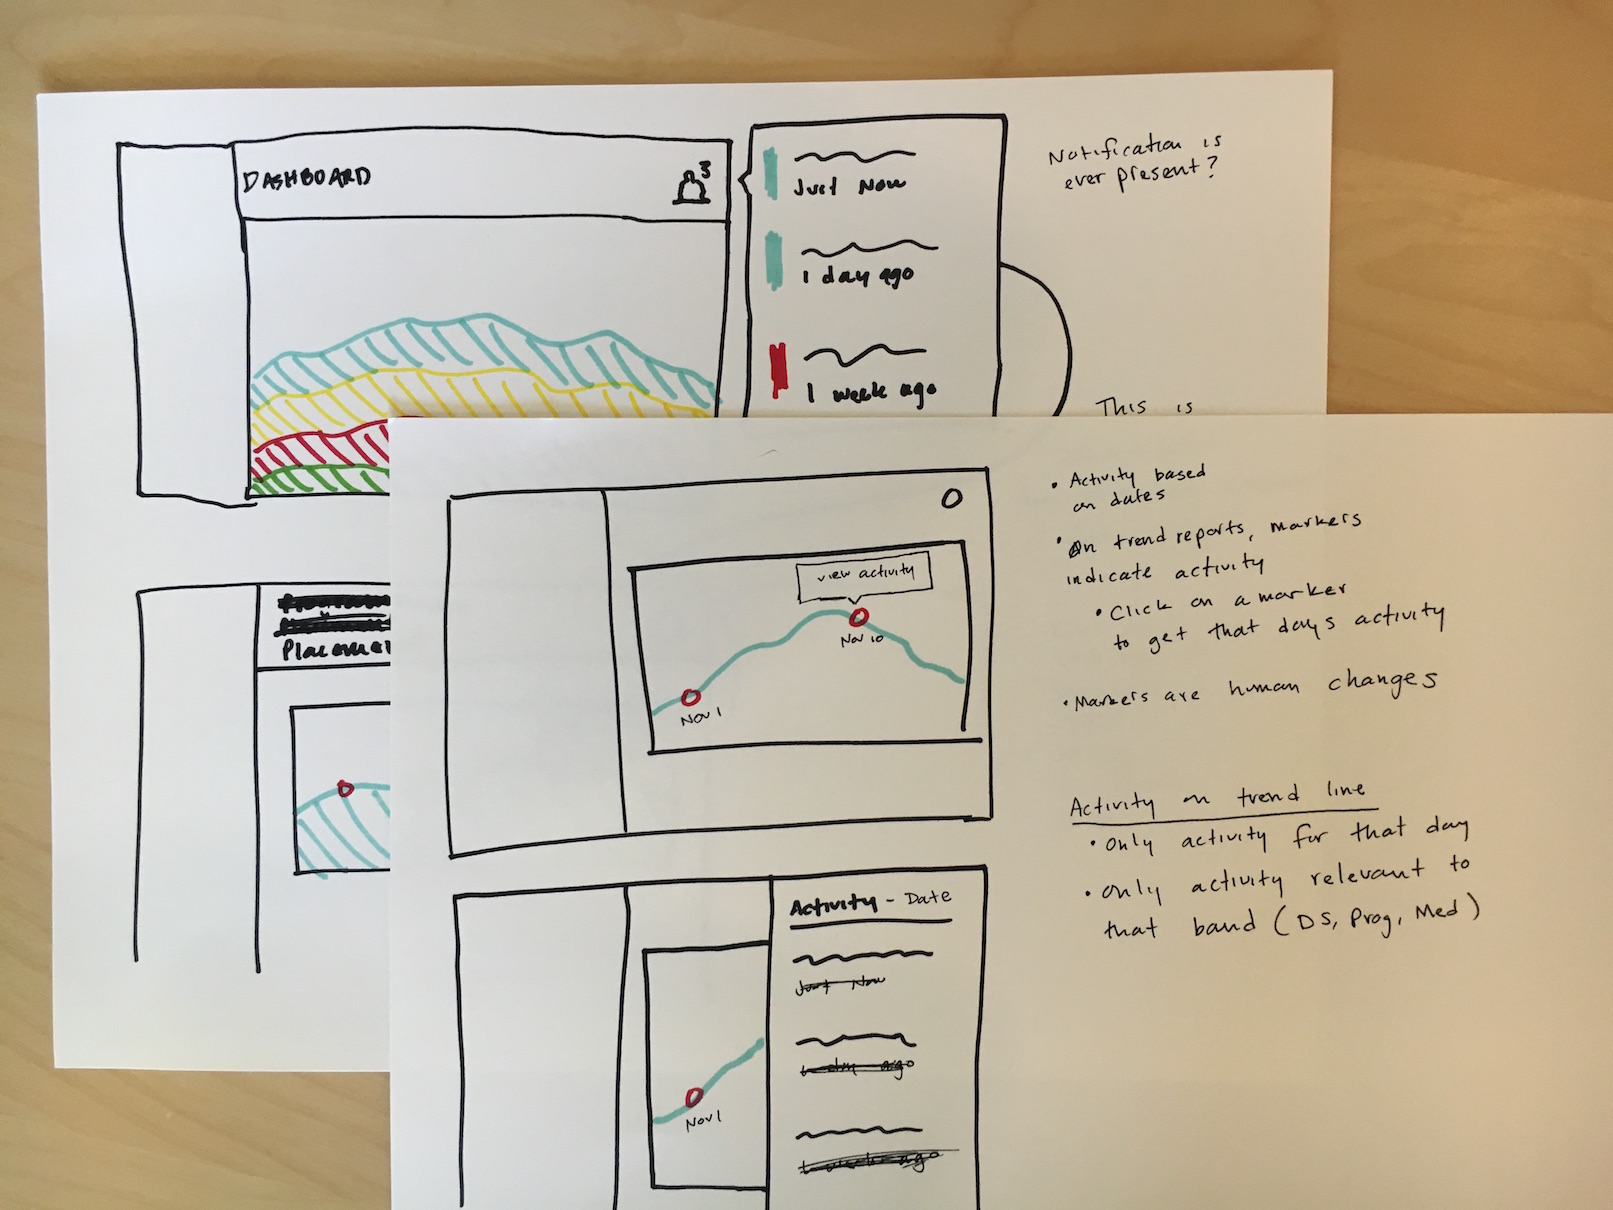 DASHBOARD
3
Just Now
1 day ago
1 week ago
Notification is
ever present?
This is
view activity
Nov 10
Nov 1
Activity based
on dates
On trend reports, markers
indicate activity
Click on a marker
to get that days activity
Markers are human changes
Activity on trend line
Only activity for that day
Only activity relevant to
that band (DS, Prog, Med)
Activity - Date
Just Now
1 day ago
1 week ago
Nov 1